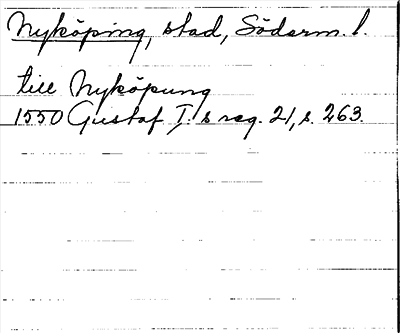 Nyköping, stad, Söderm. l.
till Nyköpung
1550 Gustaf I:s reg. 21, s. 263.